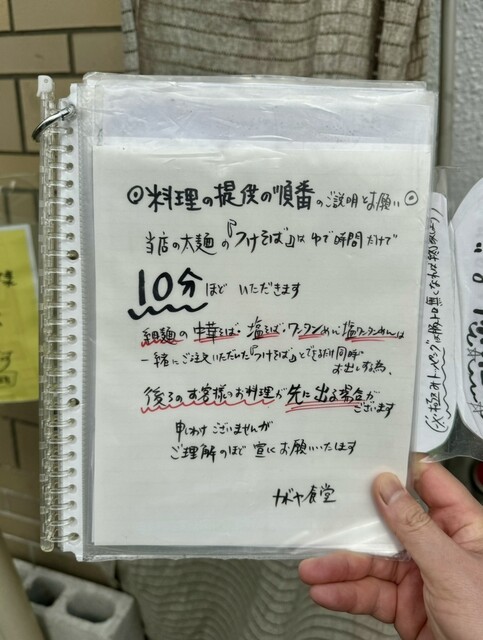 ◎料理の提供の順番のご説明とお願い◎
当店の太麺の『つけそば』はゆで時間だけで
10分ほどいただきます
細麺の中華そば・塩そば・ワンタンめん・塩ワンタンめんは
一緒にご注文いただいた『つけそば』とできるだけ同時に
お出しする為、
後ろのお客様のお料理が先に出る場合が
ございます
申しわけございませんが
ご理解のほど宜しくお願いいたします
カボヤ食堂